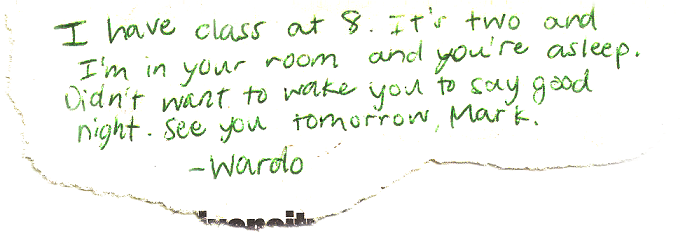 I have class at 8. It's two and
I'm in your room and you're asleep.
Didn't want to wake you to say good
night. See you tomorrow, Mark.
-Wardo